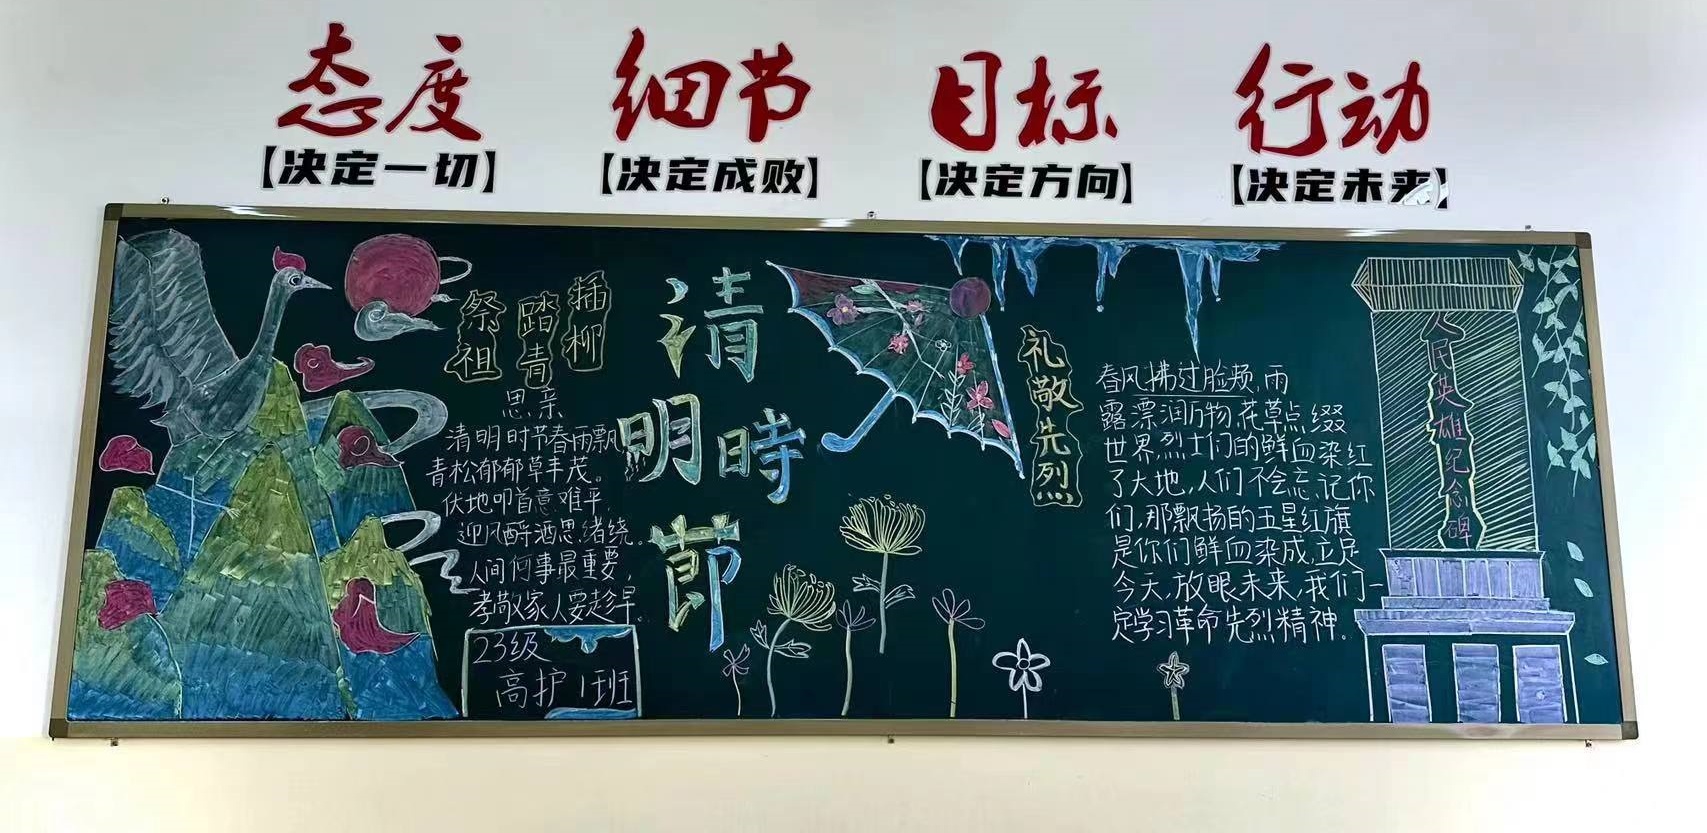 态度 细节 目标 行动
【决定一切】 【决定成败】 【决定方向】 【决定未来】
祭祖
踏青
插柳
思亲
清明时节春雨飘
青松郁郁草丰茂。
伏地叩首意难平，
迎风酹酒思绪绕。
人间何事最重要，
孝敬家人要趁早。
23级
高护1班
清
明時
節
礼敬先烈
春风拂过脸颊，雨
露漂润万物，花草点缀
世界，烈士们的鲜血染红
了大地，人们不会忘记你
们，那飘扬的五星红旗
是你们鲜血染成，立足
今天，放眼未来，我们一
定学习革命先烈精神。
人民英雄纪念碑